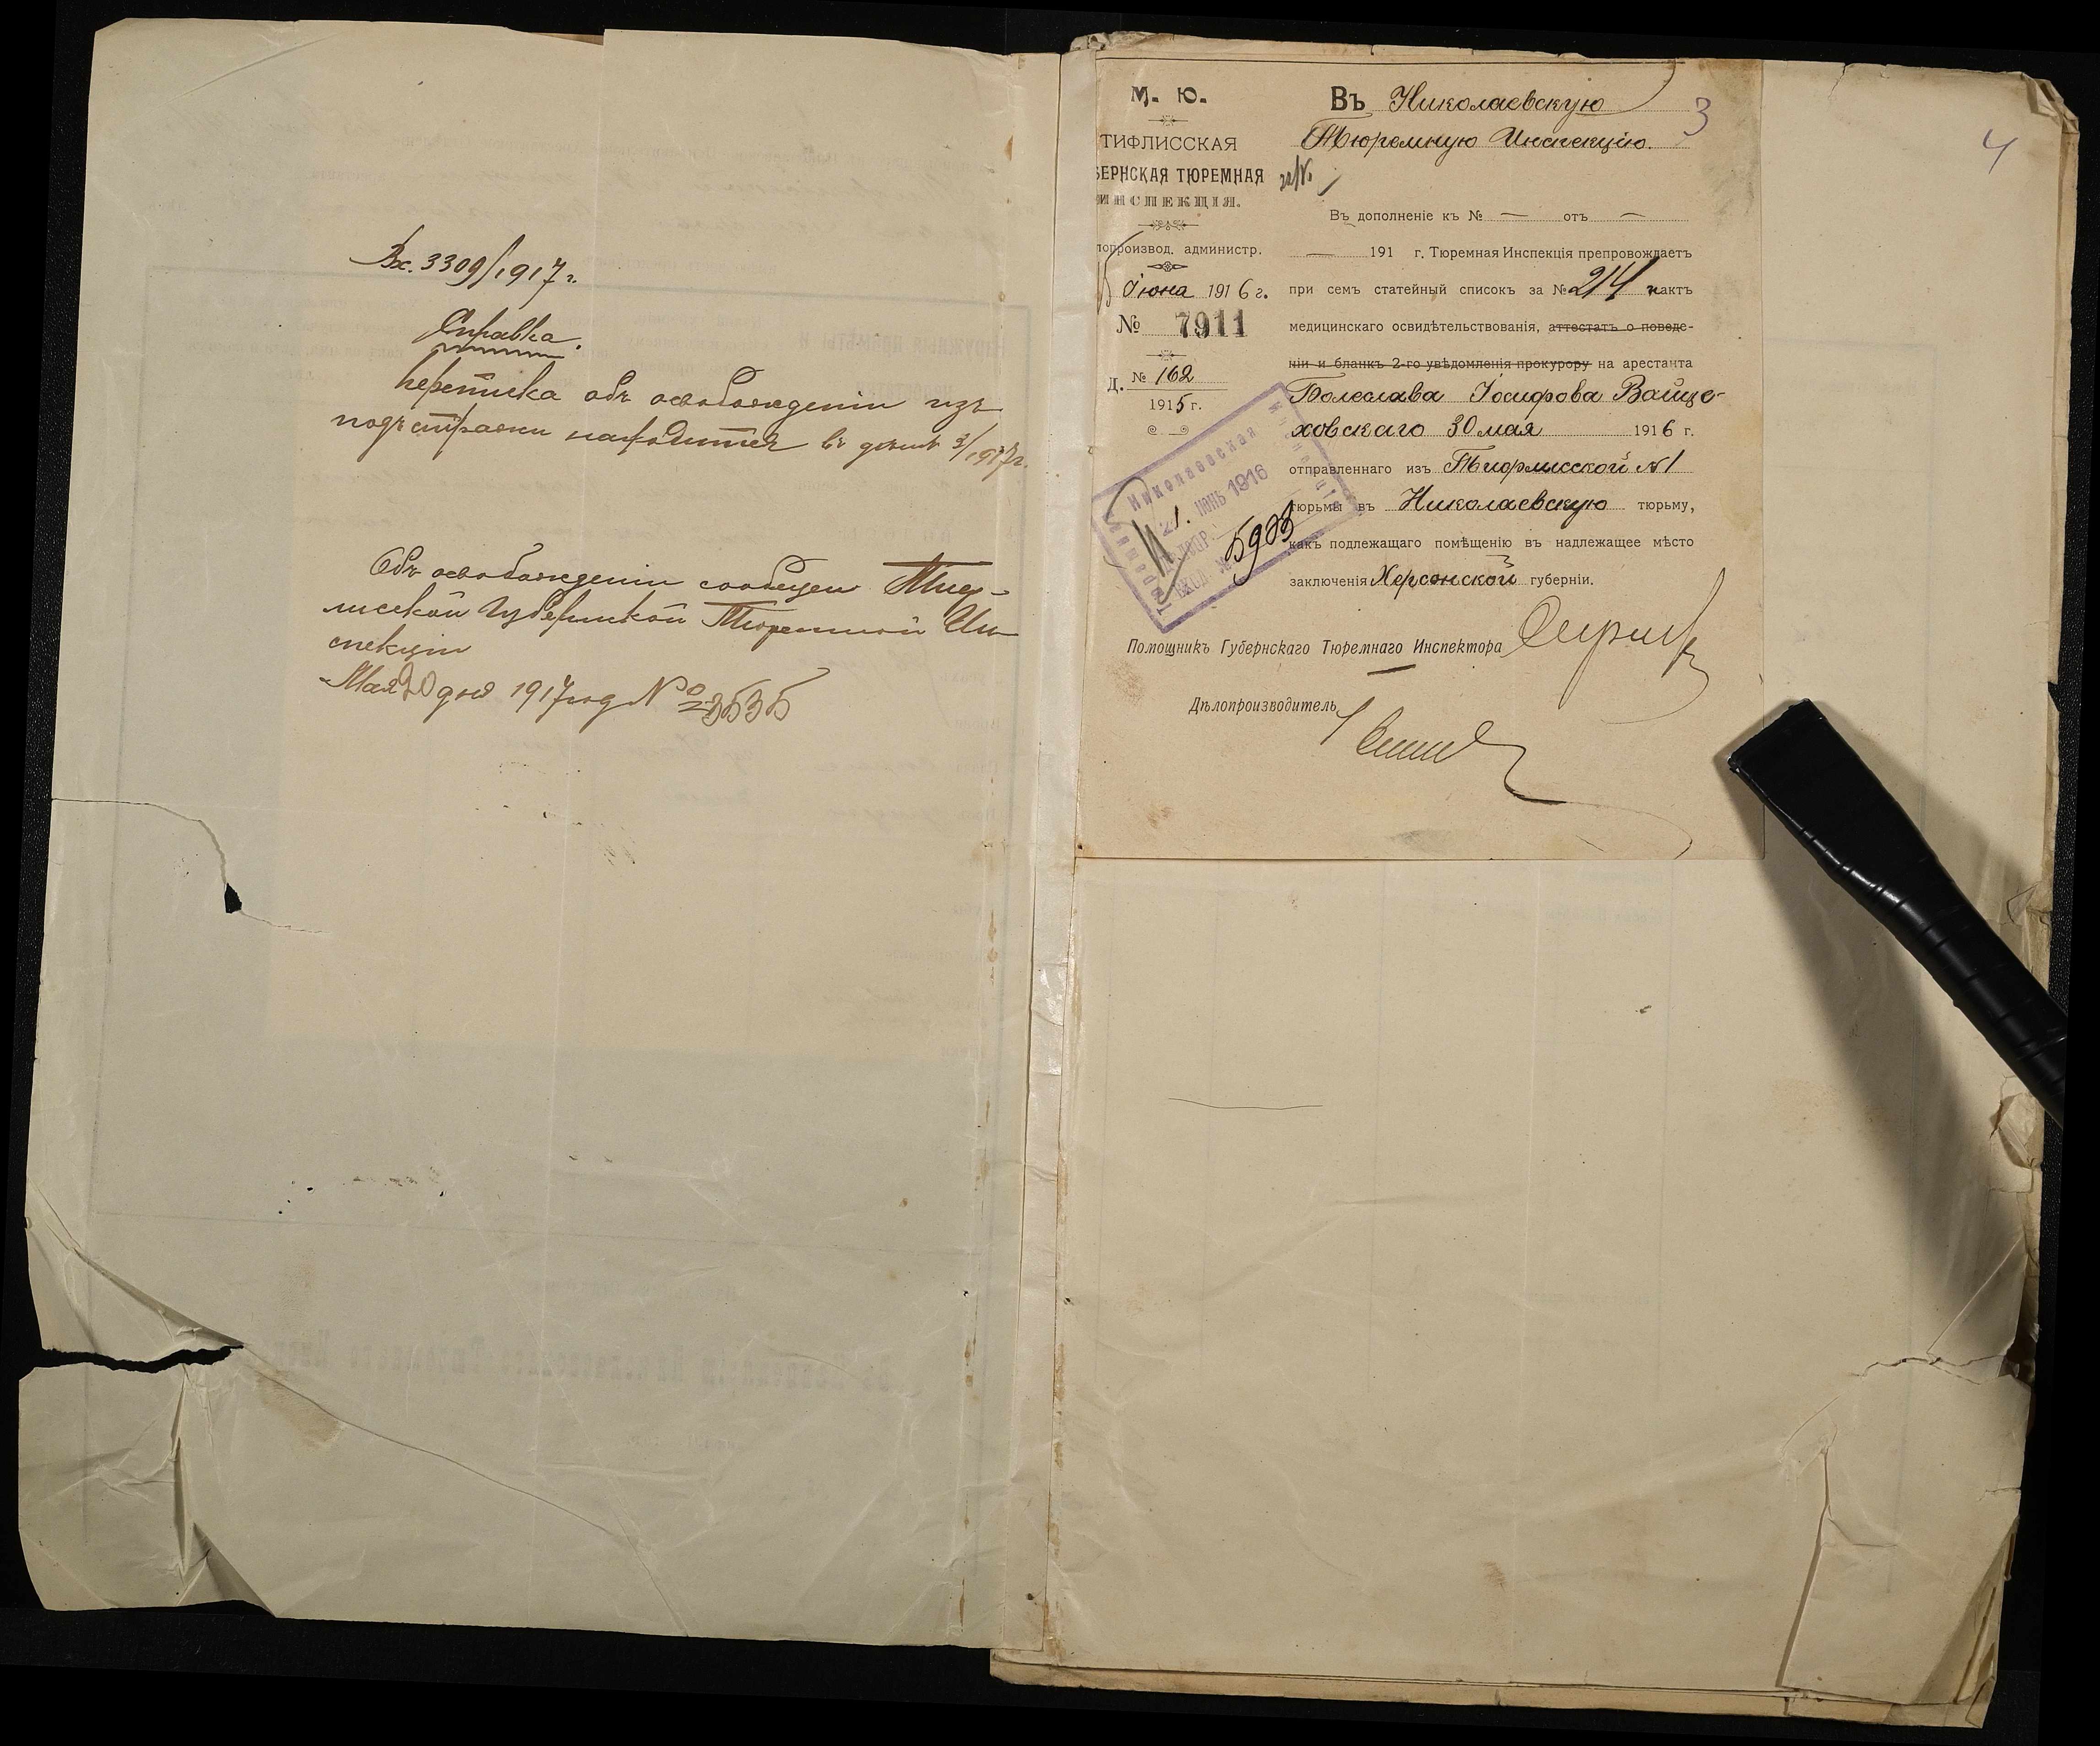 Вх. 3309/1917 г.
Справка.
Переписка объ освобожденіи изъ
подъ стражи находится въ дѣлѣ 3/1917 г.
Объ освобожденіи сообщен Тиф-
лисской Губернской Тюремной Ин-
спекціи
Мая 20 дня 1917 год № 23535
4
3
М. Ю.
ТИФЛИССКАЯ
БЕРНСКАЯ ТЮРЕМНАЯ
ИНСПЕКЦІЯ.
лопроизвод. администр.
15 Іюня 1916 г.
№ 7911
Д. № 162
1915 г.
Въ Николаевскую
Тюремную Инспекцію.
Въ дополненіе къ № — отъ —
— 191 г. Тюремная Инспекція препровождаетъ
при семъ статейный списокъ за № 214 и актъ
медицинскаго освидѣтельствованія, аттестатъ о поведе-
ніи и бланкъ 2-го увѣдомленія прокурору на арестанта
Болеслава Іосифова Войце-
ховскаго 30 мая 1916 г.
отправленнаго изъ Тифлисской №1
тюрьмы въ Николаевскую тюрьму,
какъ подлежащаго помѣщенію въ надлежащее мѣсто
заключенія Херсонской губерніи.
Николаевская
Тюремная
Инспекція
21 ІЮНЬ 1916
ВХОД. № 5983
Помощникъ Губернскаго Тюремнаго Инспектора
Дѣлопроизводитель